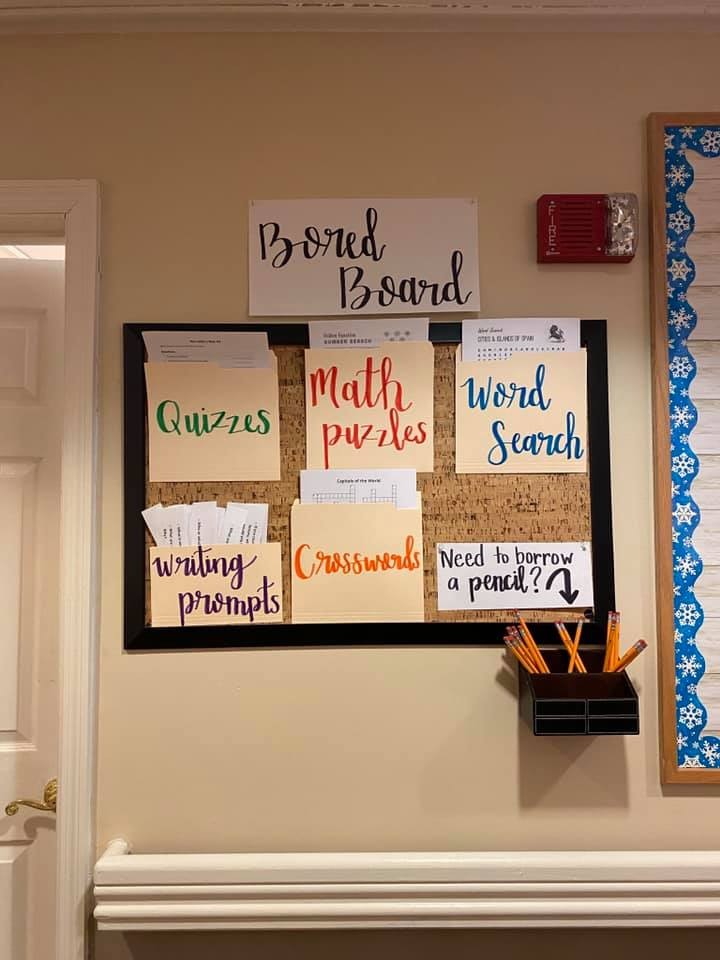 Bored
Board
FIRE
Quizzes
NUMBER SEARCH
Math
puzzles
Word Search
CITIES & ISLANDS OF SPAIN
Word
Search
Writing
prompts
Capitals of the World
Crosswords
Need to borrow
a pencil?